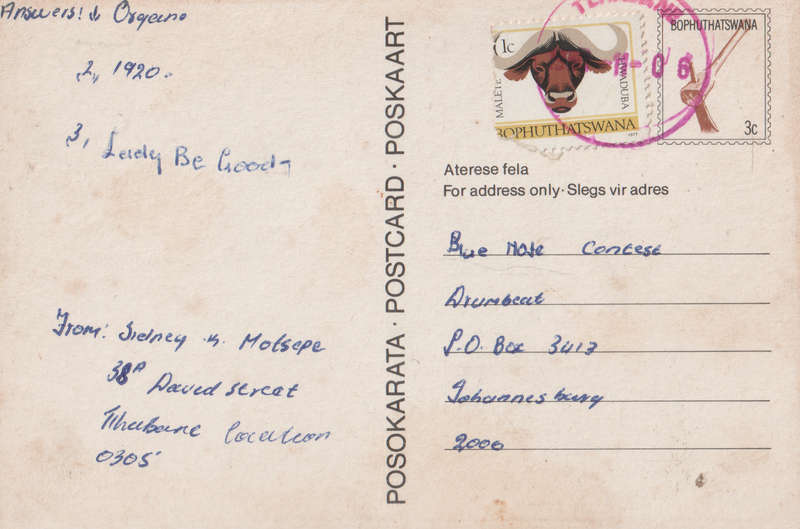 Answers: 1, Organo
2, 1920.
3, Lady Be Good
From: Sidney K. Motsepe
38A David Street
Tlhabane location
0305
POSOKARATA · POSTCARD · POSKAART
1c
MALETE
LWADUBA
BOPHUTHATSWANA
1977
BOPHUTHATSWANA
3c
11-06
Aterese fela
For address only · Slegs vir adres
Blue Note Contest
Drumbeat
P.O. Box 3413
Johannesburg
2000